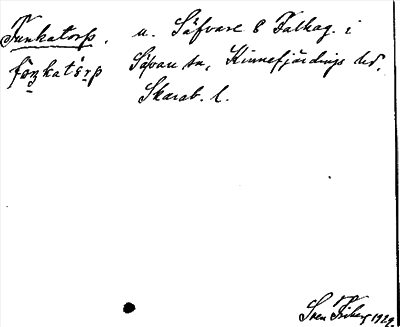 Funkatorp. u. Säfvare 8 Falkag. i
fɷŋkatårp Säfvare sn, Kinnefjärdings hd.
Skarab. l.
Sven Friberg 1929.